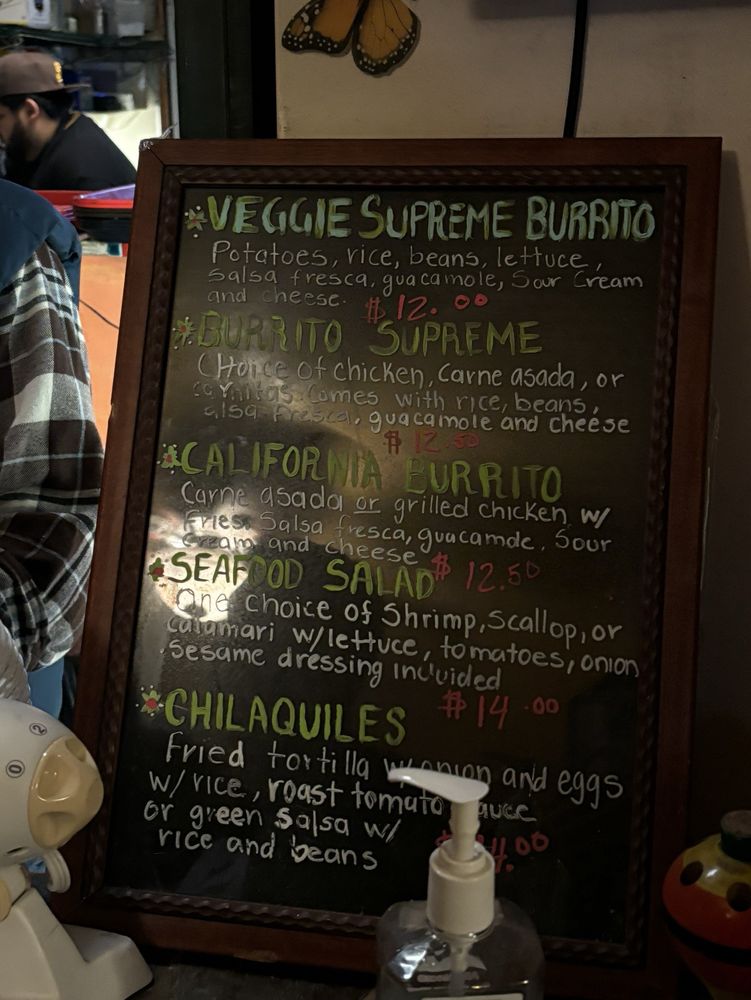 VEGGIE SUPREME BURRITO
Potatoes, rice, beans, lettuce,
Salsa fresca, guacamole, Sour Cream
and cheese. $12.00
BURRITO SUPREME
Choice of chicken, Carne asada, or
carnitas. Comes with rice, beans,
alsa fresca, guacamole and cheese
$12.50
CALIFORNIA BURRITO
Carne asada or grilled chicken w/
Fries Salsa fresca, guacamole. Sour
Cream and cheese $12.50
SEAFOOD SALAD
One choice of Shrimp, Scallop, or
calamari w/lettuce, tomatoes, onion
Sesame dressing included
$14.00
CHILAQUILES
Fried tortilla w/onion and eggs
w/rice, roast tomato sauce
or green Salsa w/
rice and beans
0 2